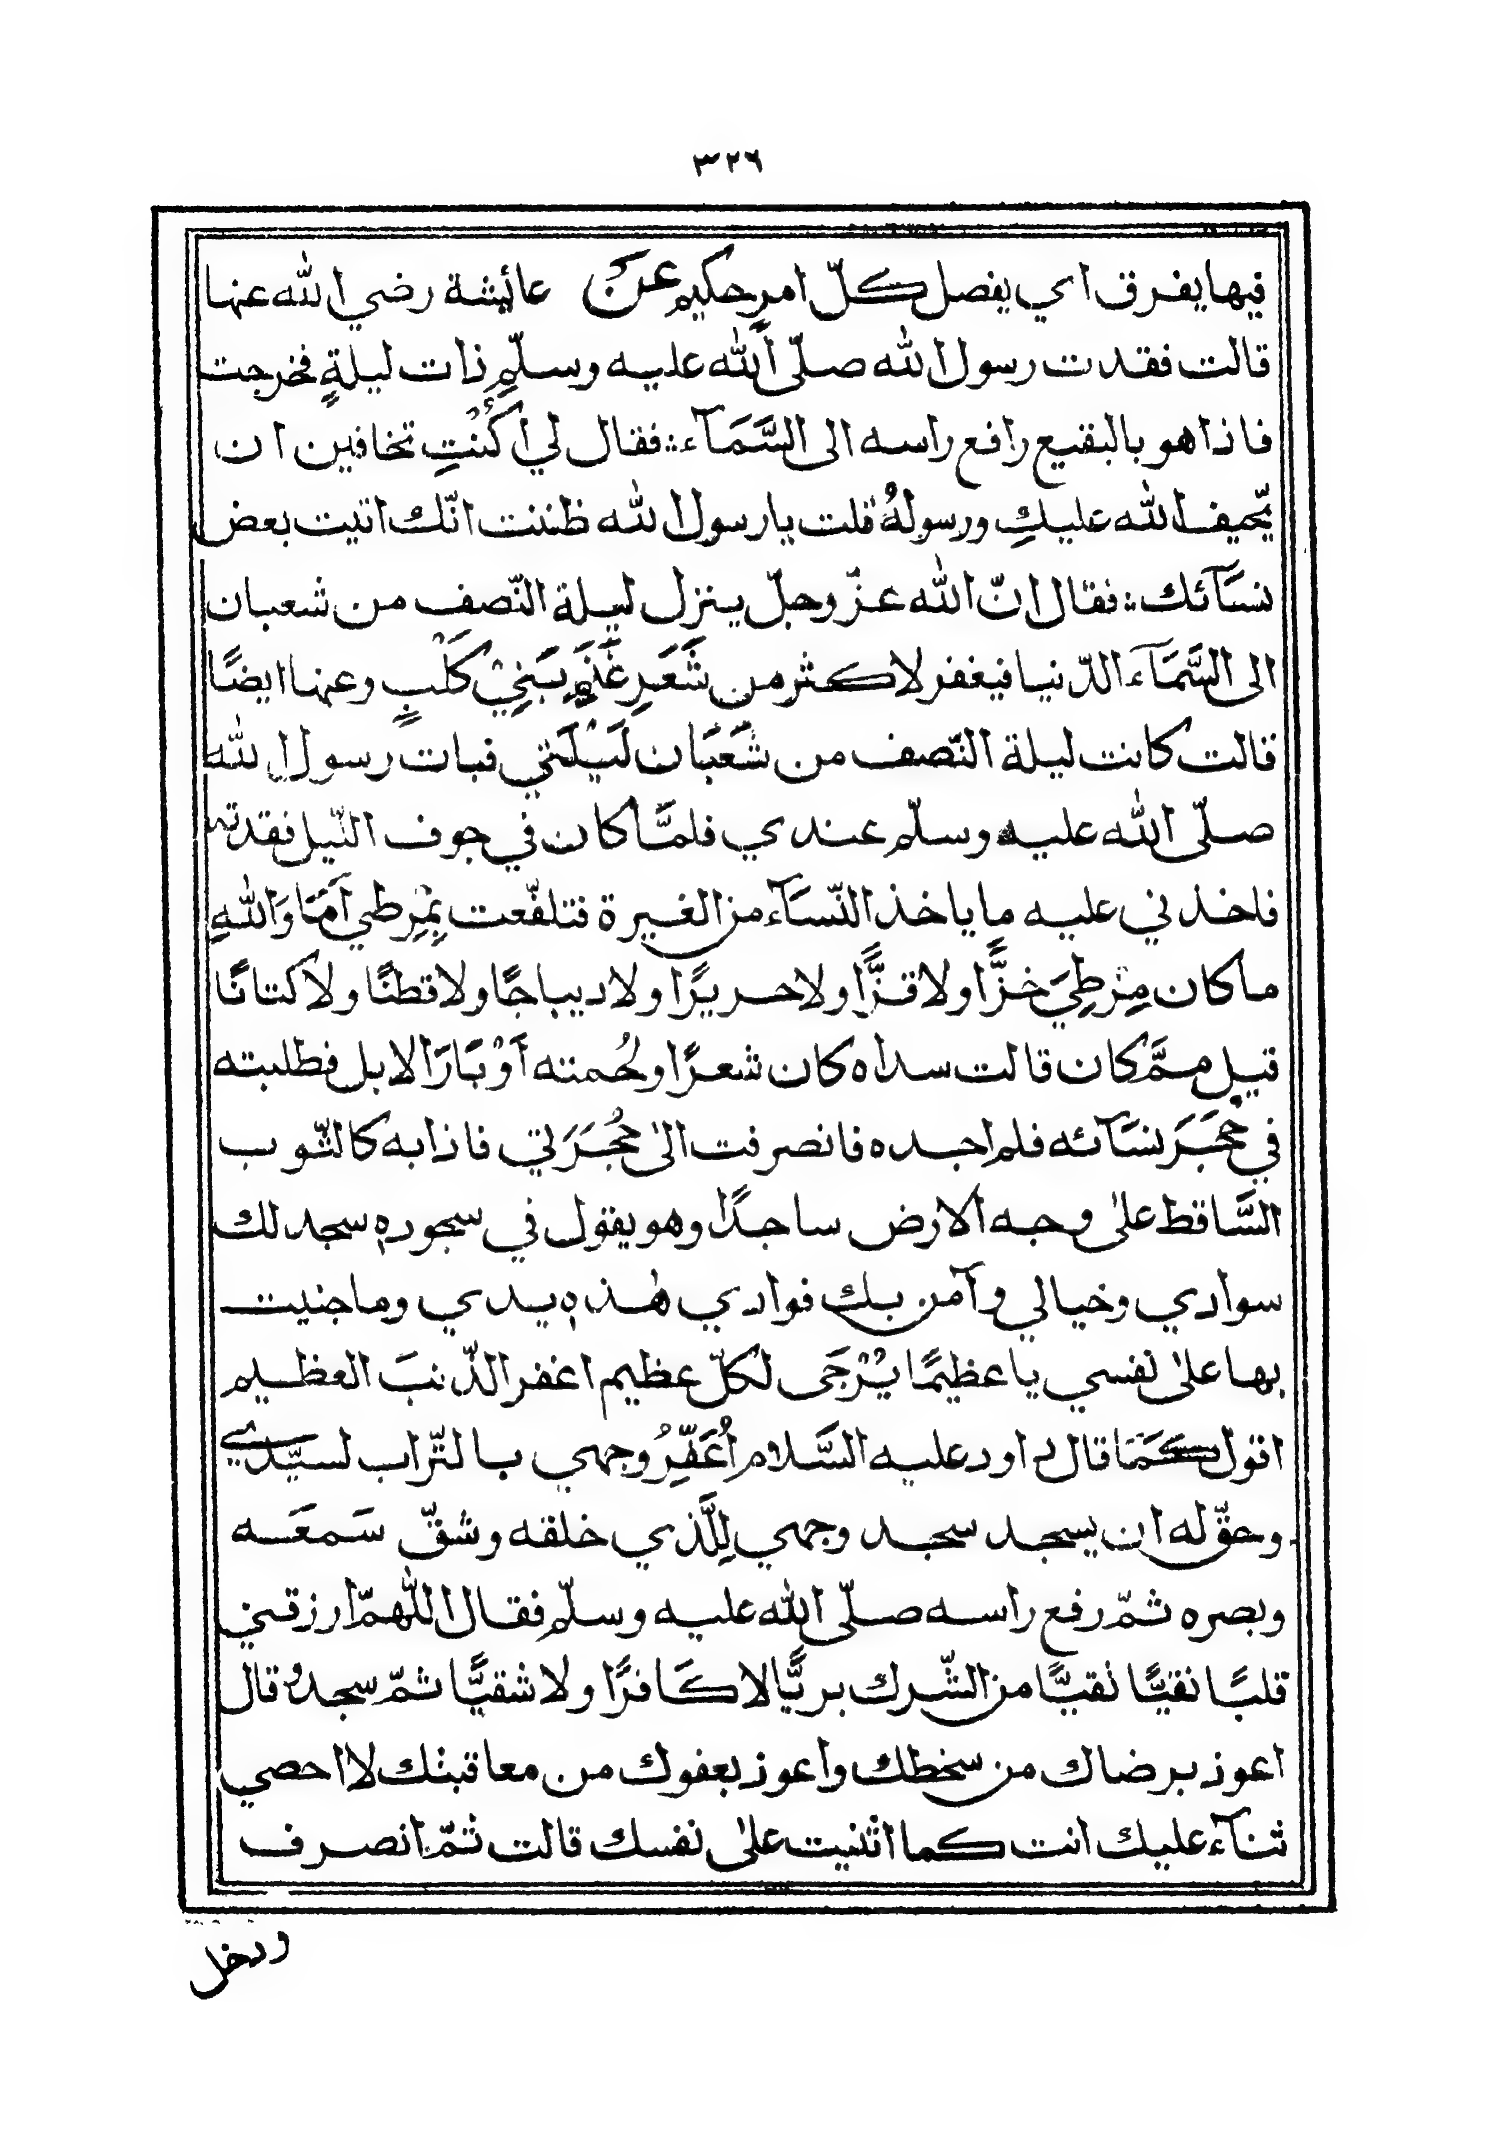 ٣٢٦
فيها يفرق اي يفصل كلّ امر حكيم عَنْ عائِشة رضي الله عنها
قالت فقدت رسول الله صلّى اَلله عليه وسلّم ذات ليلةٍ فخرجت
فاذا هو بالبقيع رافع راسه الى السَّمَآء فقال لي اَكُنْتِ تخافين ان
يّحيف الله عليكِ ورسولهُ قلت يا رسول الله ظننت انّك اتيت بعض
نسَآئك فقال انّ الله عزّ وجلّ ينزل ليلة النّصف من شعبان
الى السَّمَآء الدّنيا فيغفر لاكثر من شَعَرِ غَنَمِ بَنِيْ كَلْبٍ وعنها ايضًا
قالت كانت ليلة النّصف من شَعَبَان لَيْلَتي فبات رسول الله
صلّى الله عليه وسلّم عندي فلمَّا كان في جوف اللّيل فقدته
فاخذني عليه ما ياخذ النّسَآء من الغيرة فتلفّعت بِمْرِطي اَمَا وَاللهِ
ما كان مِرْطِيَ خزًّا ولا قزًّا ولا حريرًا ولا ديباجًا ولا قطنًا ولا كتانًا
قيل ممَّ كان قالت سداه كان شعرًا ولُحمته اَوْبَارَ الابل فطلبته
في حُجَرَ نسَآئه فلم اجده فانصرفت الى حُجَرَتي فاذا به كالثّوب
السَّاقط على وجه الارض ساجدًا وهو يقول في سجوده سجد لك
سوادي وخيالي وآمن بك فوادي هٰذه يدي وما جنيت
بها على نفسي يا عظيمًا يُرْجَى لكلّ عظيم اغفر الذّنبَ العظيم
اقول كَمَا قال داود عليه السَّلام اُعَفِّرُ وجهي بالتّراب لسيّدي
وحقّ له ان يسجد سجد وجهي لِلَّذي خلقه وشقّ سَمعَه
وبصره ثمّ رفع راسه صلّى الله عليه وسلّم فقال اللّهمّ ارزقني
قلبًا نقيًّا نقيًّا من الشّرك بريًّا لا كَافرًا ولا شقيًّا ثمّ سجد وقال
اعوذ برضاك من سخطك واعوذ بعفوك من معاقبتك لا احصي
ثنآء عليك انت كما اثنيت على نفسك قالت ثمّ انصرف
ودخل